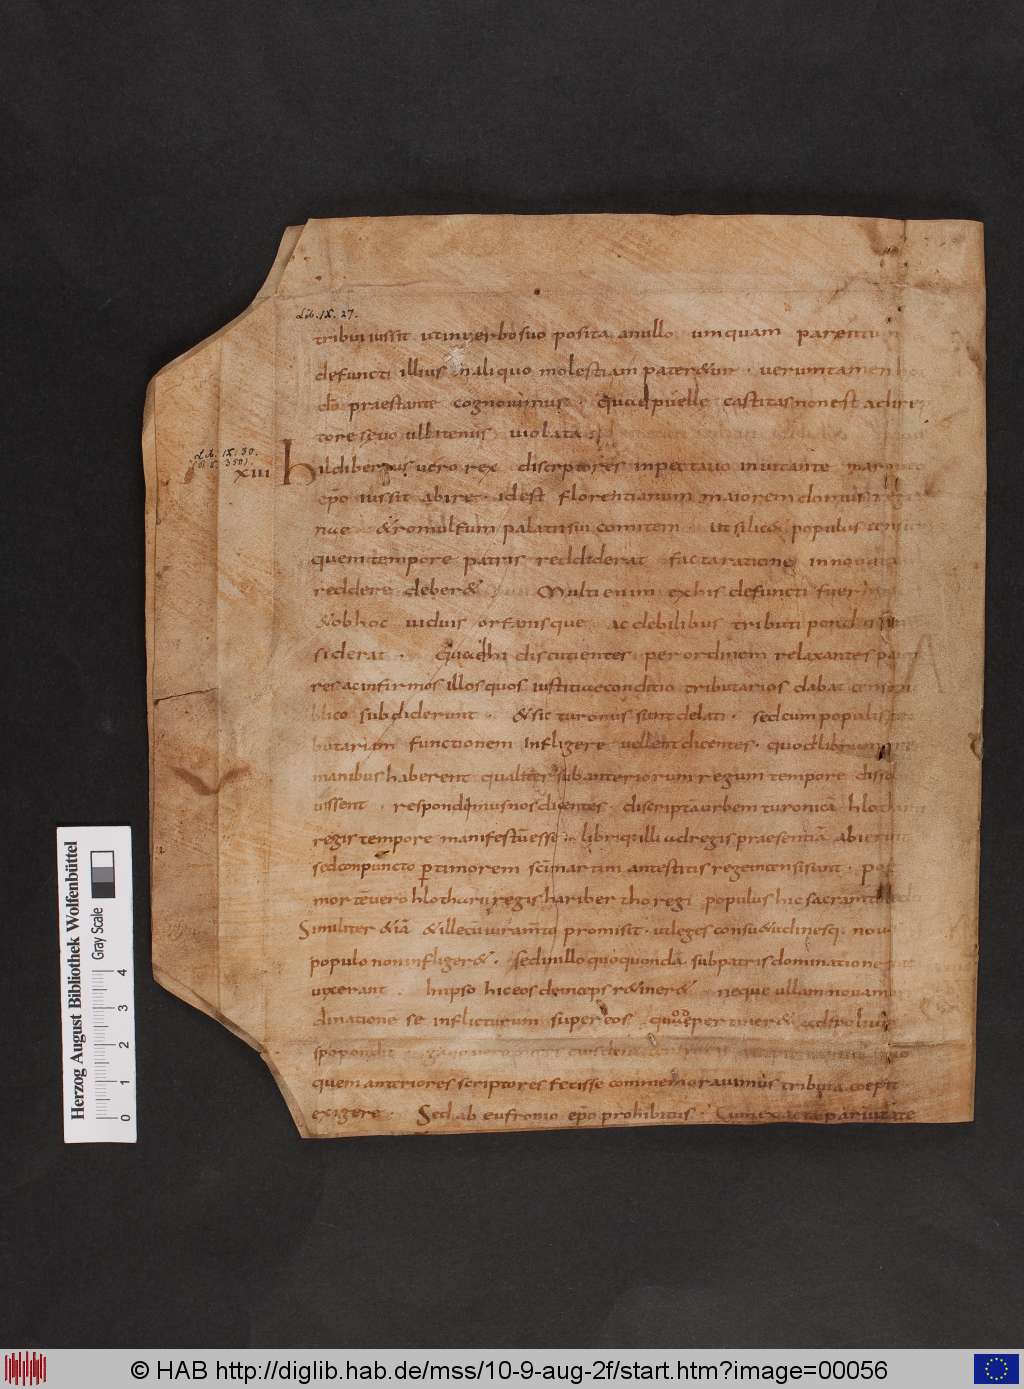 Lib. IX. 27.
tribui iussit ut in uerbo suo posita a nullo umquam parentu
defuncti illius in aliquo molestiam pater&ur . ueruntamen hoc
dō praestante cognouimus . quod puelle castitas non est ad ire
tore seuo ullitenus uiolata
Lib. IX. 30.
XIII
hildibertus uero rex discriptores in pectauo inuitante
epō iussit abire . id est florentianum maiorem domus regi
nae &romulfum palatii sui comitem . ut silic& populus censum
quem tempore patris reddiderat facta ratione innouata
reddere deber& Multi enim ex his defuncti fuer
&ob hoc uiduis orfanisque ac debilibus tributi pondus in
siderat . Quod hi discutientes per ordinem relaxantes paupe
res ac infirmos illos quos iustitiae conditio tributarios dabat censo pu
blico subdiderunt . &sic turonus sunt delati . sed cum populis tri
butariam functionem infligere uellent dicentes . quod librum prae
manibus haberent qualiter sub anteriorum regum tempore disso
uissent . respondimus nos dicentes discriptā urbem turonicā hlotharii
regis tempore manifestū esse . libri qui illi ad regis praesentiā abierunt
sed conpuncto p timorem scī martini antestitis rege incensi sunt . post
mortē uero hlotharii regis hariber tho regi populus hic sacramtū dedit
Similiter &iā &ille cū iuramto promisit . ut leges consu&udinesq; nouas
populo non infliger& . sed in illo quo quondā sub patris dominatione
uixerant . In ipso hic eos deinceps r&iner& neque ullam nouam or
dinatione se inflicturum super eos quod per tiner& ad spolium
spopondit
quem anteriores scriptores fecisse commemorauimus tributa coepit
exigere . Sed ab eufronio epō prohibitus . Cum exacta parauitate
Herzog August Bibliothek Wolfenbüttel
Gray Scale
0 1 2 3 4
© HAB http://diglib.hab.de/mss/10-9-aug-2f/start.htm?image=00056